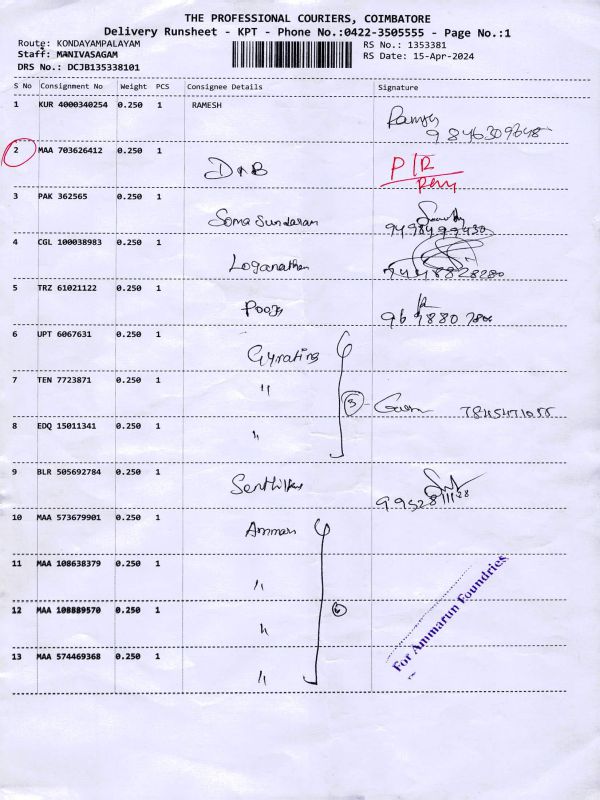 THE PROFESSIONAL COURIERS, COIMBATORE
Delivery Runsheet - KPT - Phone No.:0422-3505555 - Page No.:1
Route: KONDAYAMPALAYAM
Staff: MANIVASAGAM
DRS No.: DCJB135338101
RS No.: 1353381
RS Date: 15-Apr-2024
S No Consignment No Weight PCS Consignee Details Signature
1 KUR 4000340254 0.250 1 RAMESH Ramesh
9846309648
2 MAA 703626412 0.250 1 P/R
DNB
3 PAK 362565 0.250 1
Soma Sundaram 9498499430
4 CGL 100038983 0.250 1
Loganathan 9448828280
5 TRZ 61021122 0.250 1
Pooja
6 UPT 6067631 0.250 1
Gyrating
7 TEN 7723871 0.250 1
" 3 7845471055
8 EDQ 15011341 0.250 1
"
9 BLR 505692784 0.250 1
Senthilkr 9952811128
10 MAA 573679901 0.250 1
Amman
11 MAA 108638379 0.250 1
"
12 MAA 108889570 0.250 1
"
13 MAA 574469368 0.250 1
"
For Ammarun Foundries